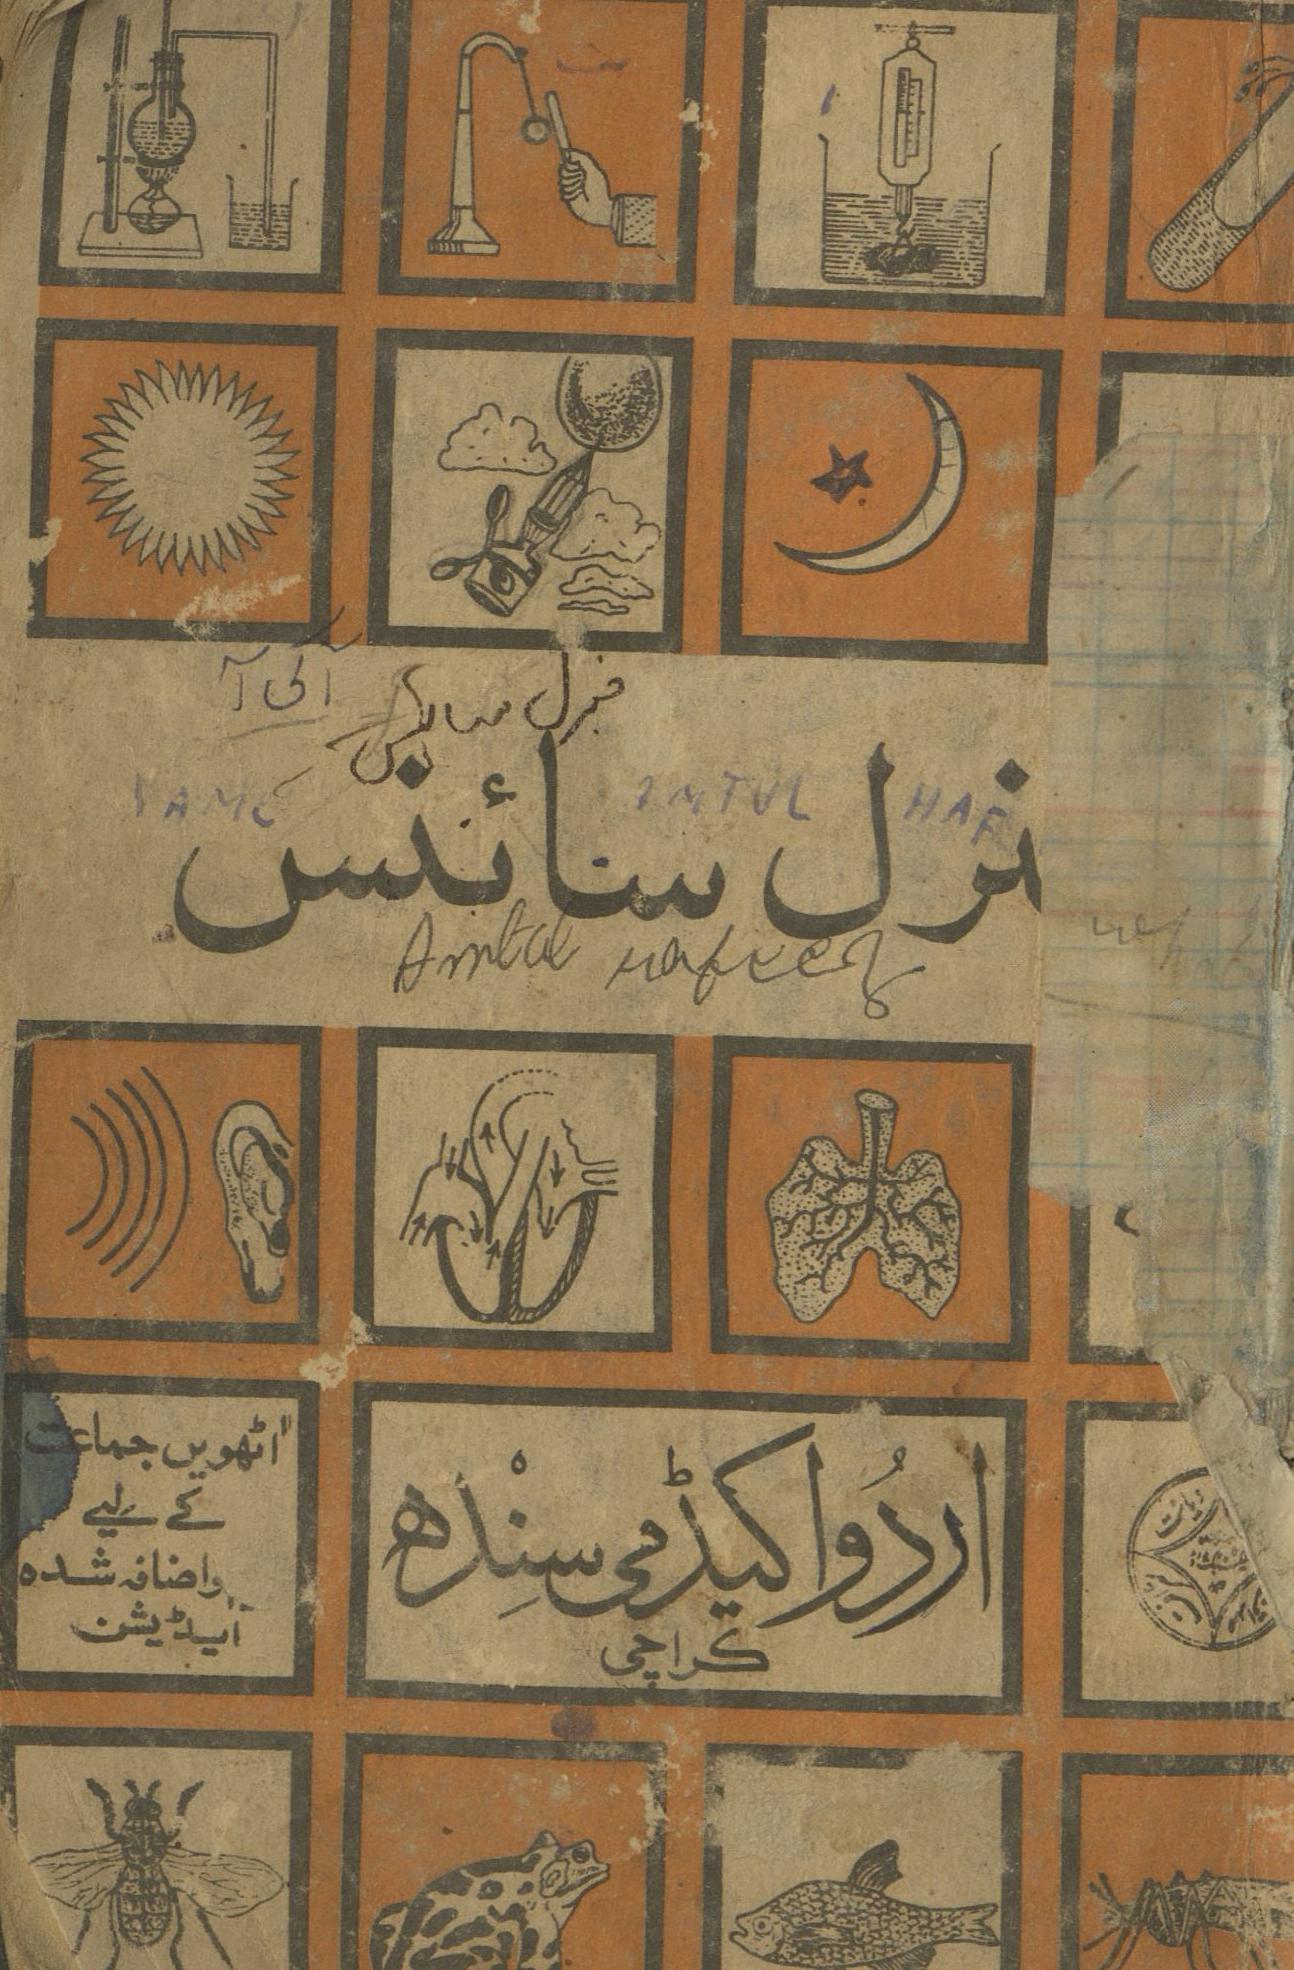 جنرل سائنس
NAME IMTUL HAF
نرل سائنس
Amtul Hafeez
آٹھویں جماعت
کے لیے
واضافہ شدہ
ایڈیشن
اردُو اکیڈمی سِنْدھ
کراچی